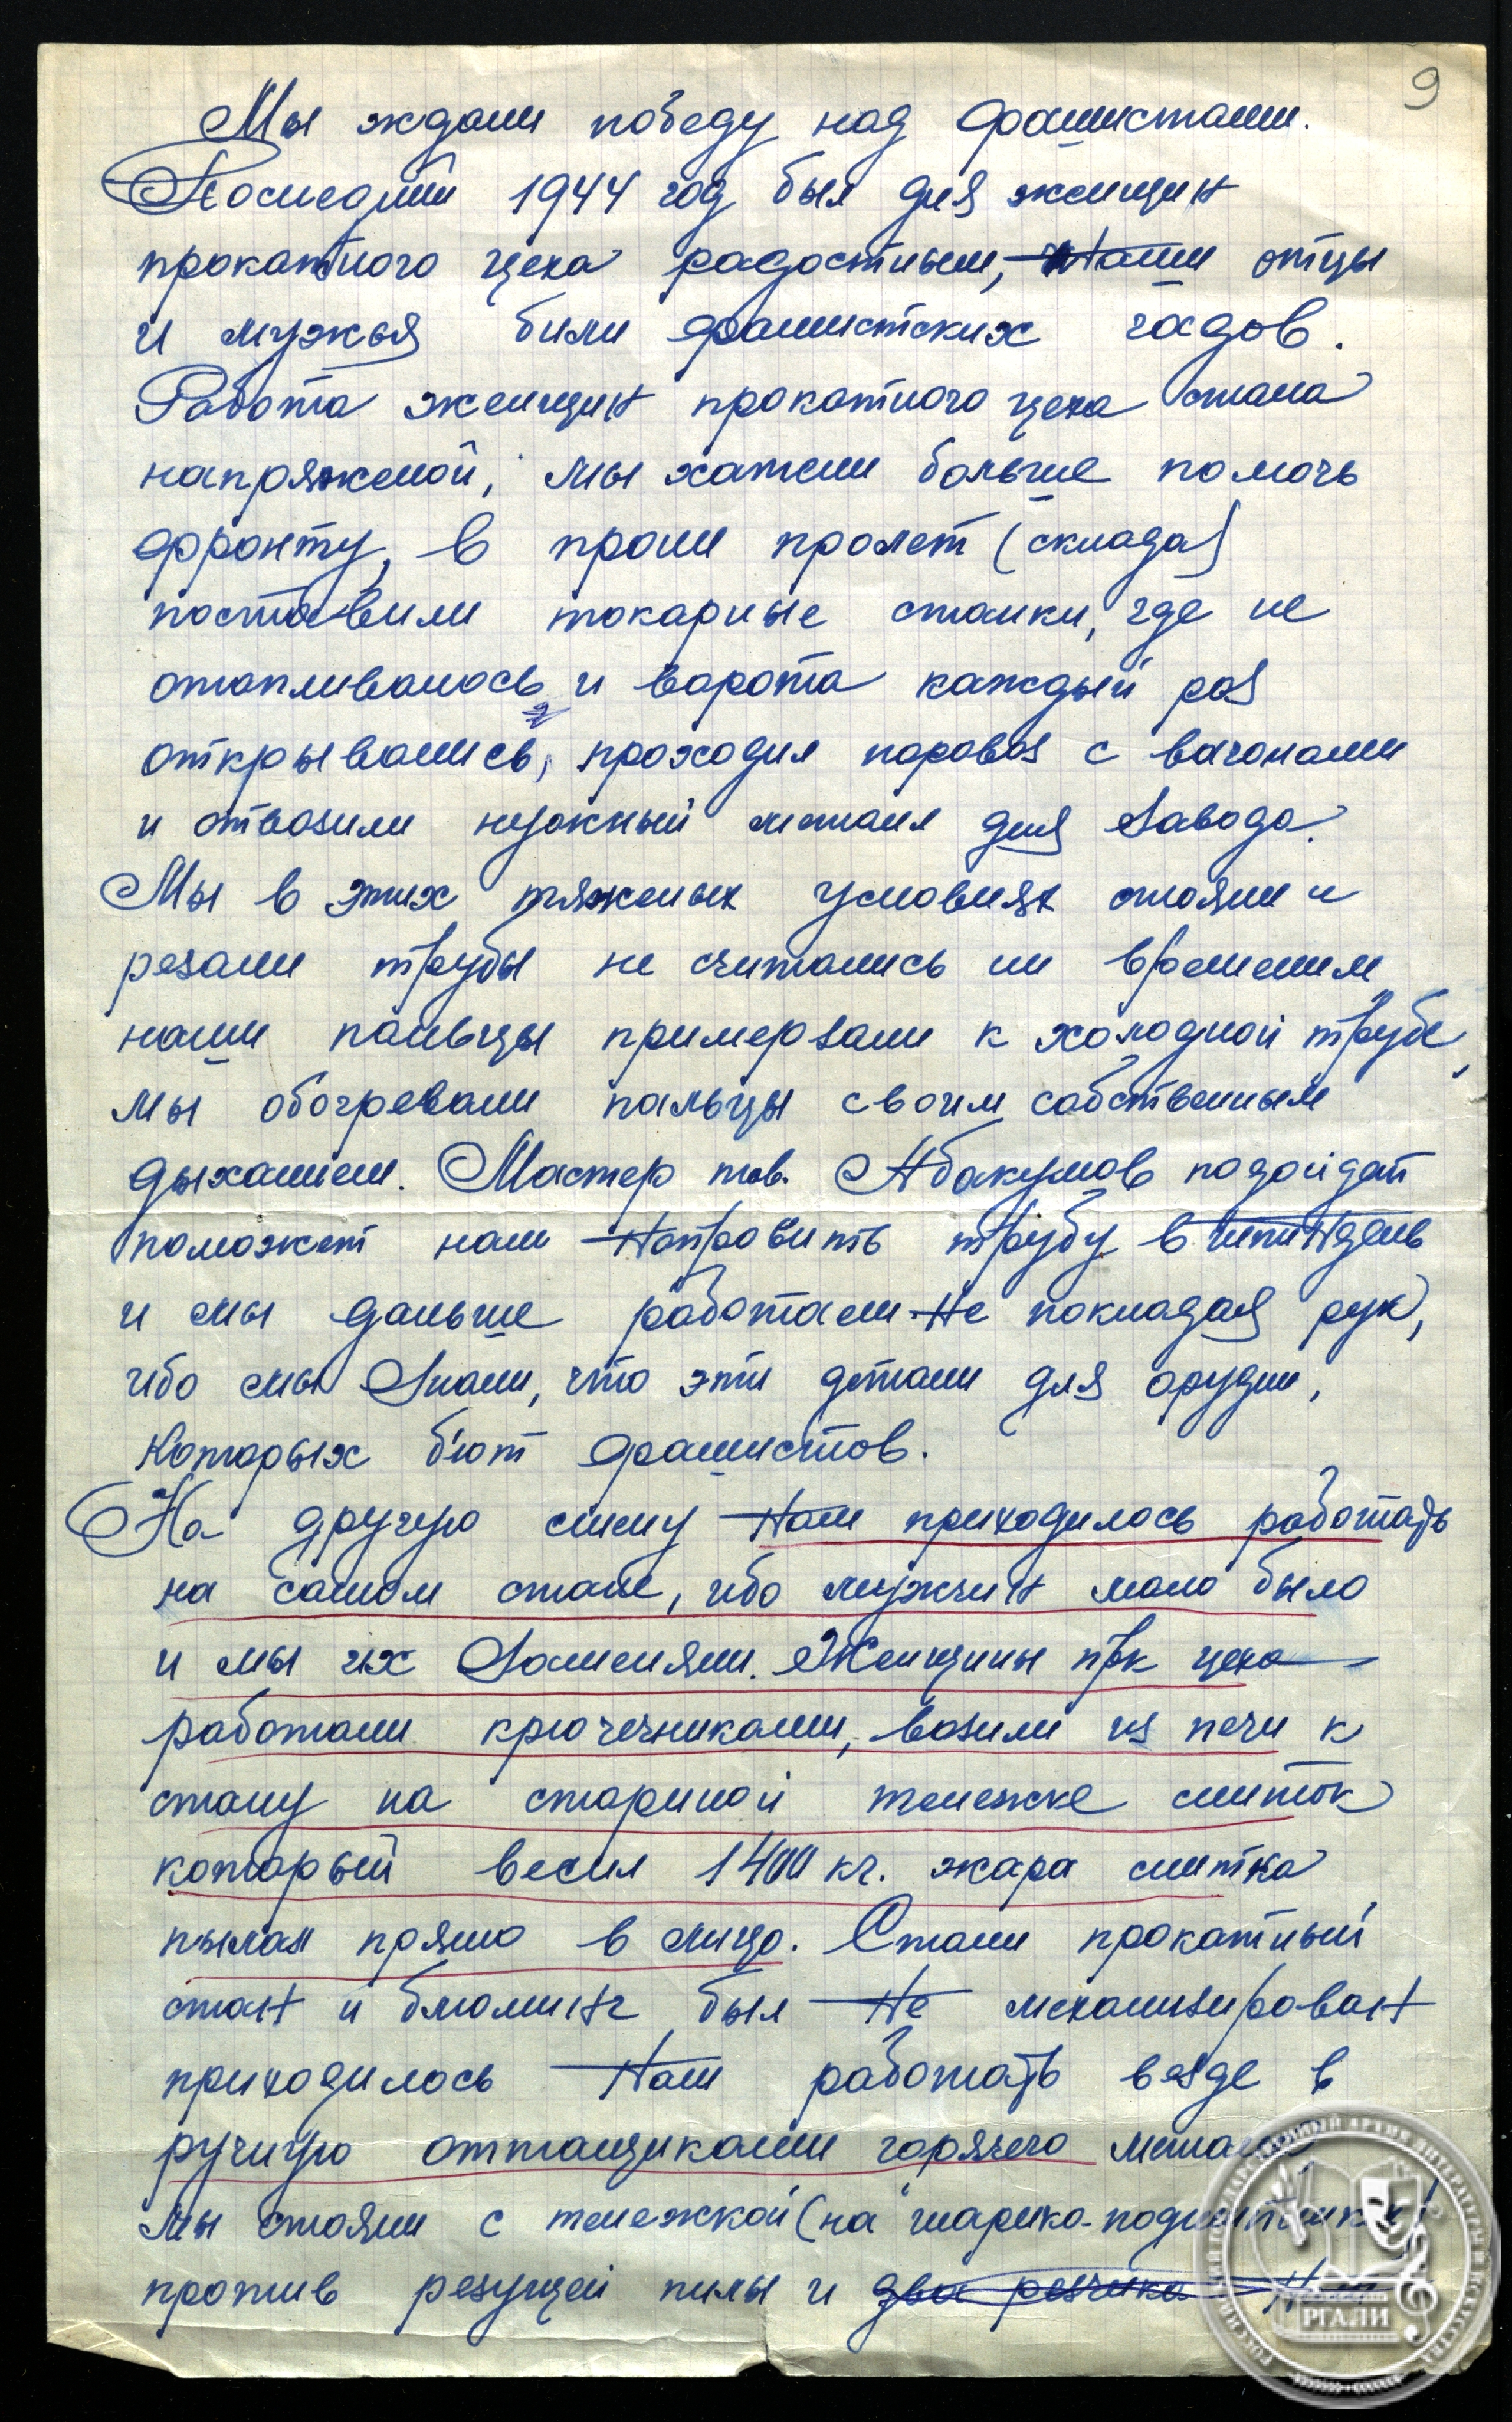 9
Мы ждали победу над фашистами.
Последний 1944 год был для женщин
прокатного цеха радостным, наши отцы
и мужья били фашистских гадов.
Работа женщин прокатного цеха стала
напряженой, мы хатели больше помочь
фронту, в пролёт (склада)
поставили токарные станки, где не
отапливалось и ворота каждый раз
открывались, проходил паровоз с вагонами
и отвозили нужный металл для завода.
Мы в этих тяжелых условиях стояли и
резали трубы не считались ни временим
наши пальцы примерзали к холодной трубе,
мы обогревали пальцы своим собственным
дыханием. Мастер тов. Абакумов подойдёт
поможет нам направить трубу в
и мы дальше работали не покладая рук,
ибо мы знали, что эти детали для орудии,
которых бьют фашистов.
На другую смену нам приходилось работать
на самом стане, ибо мужчин мало было
и мы их заменяли. Женщины прк цеха
работали крючечниками, возили из печи к
стану на стариной тележке слиток
который весил 1400 кг. жара слитка
пылал прямо в лицо. Стали прокатный
стан и блюминг был не механизирован
приходилось нам работать везде в
ручную оттащиками горячего метала
Мы стояли с тележкой (на шарико-подшипниках)
против резущей пилы и два резчика
РГАЛИ